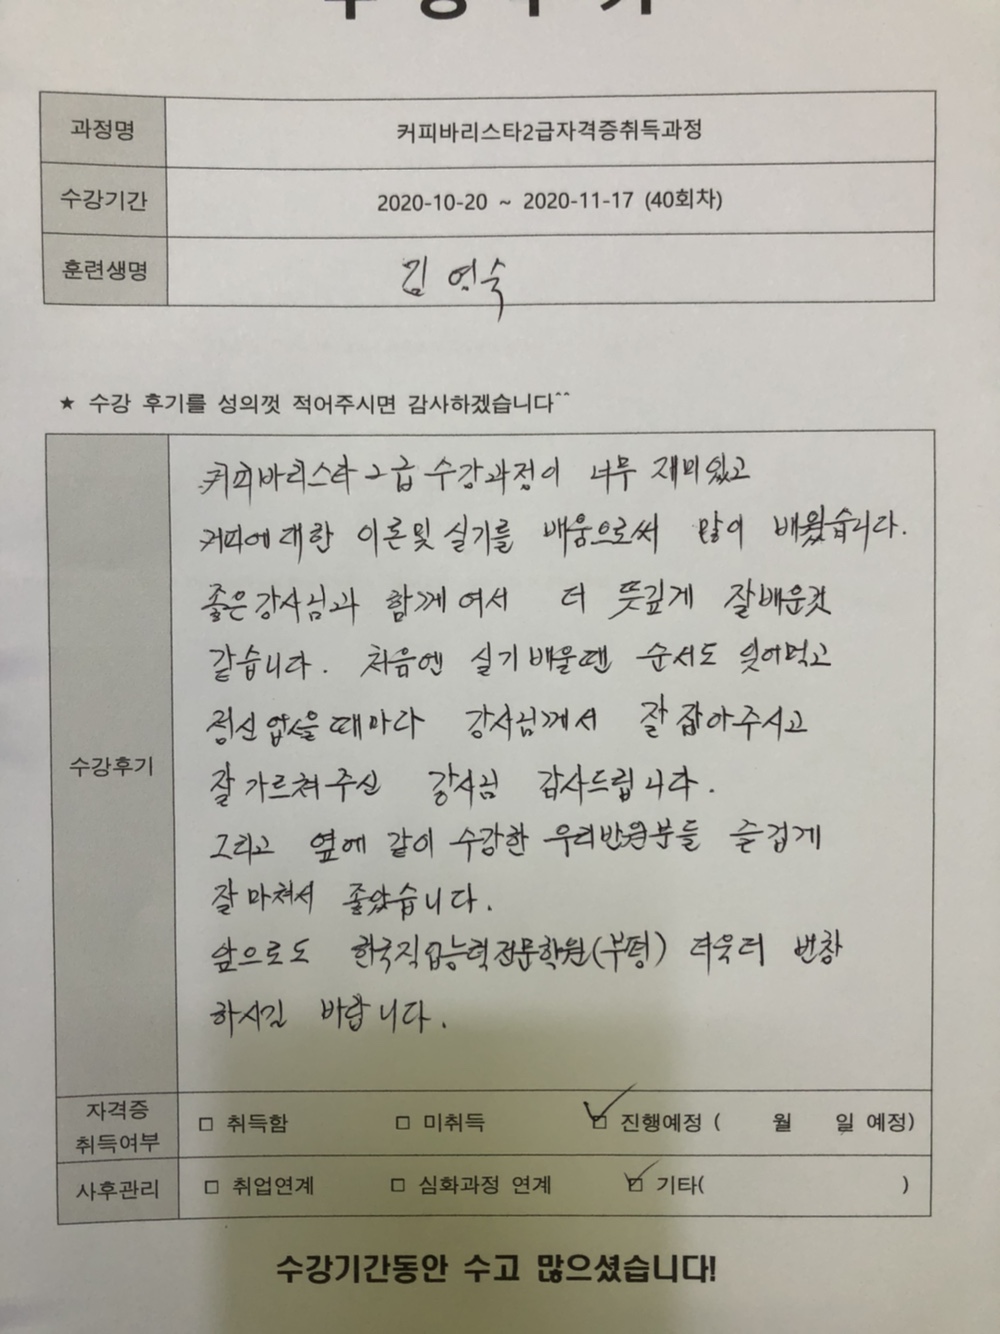 수강후기
과정명 커피바리스타2급자격증취득과정
수강기간 2020-10-20 ~ 2020-11-17 (40회차)
훈련생명 김영숙
★ 수강 후기를 성의껏 적어주시면 감사하겠습니다^^
수강후기
커피바리스타 2급 수강과정이 너무 재미있고
커피에 대한 이론및 실기를 배움으로써 많이 배웠습니다.
좋은 강사님과 함께여서 더 뜻깊게 잘배운것
같습니다. 처음엔 실기 배울땐 순서도 잊어먹고
정신 없을때마다 강사님께서 잘 잡아주시고
잘 가르쳐주신 강사님 감사드립니다.
그리고 옆에 같이 수강한 우리반원분들 즐겁게
잘 마쳐서 좋았습니다.
앞으로도 한국직업능력전문학원(부평) 더욱더 번창
하시길 바랍니다.
자격증 취득여부 □ 취득함 □ 미취득 ☑ 진행예정 ( 월 일 예정)
사후관리 □ 취업연계 □ 심화과정 연계 ☑ 기타( )
수강기간동안 수고 많으셨습니다!